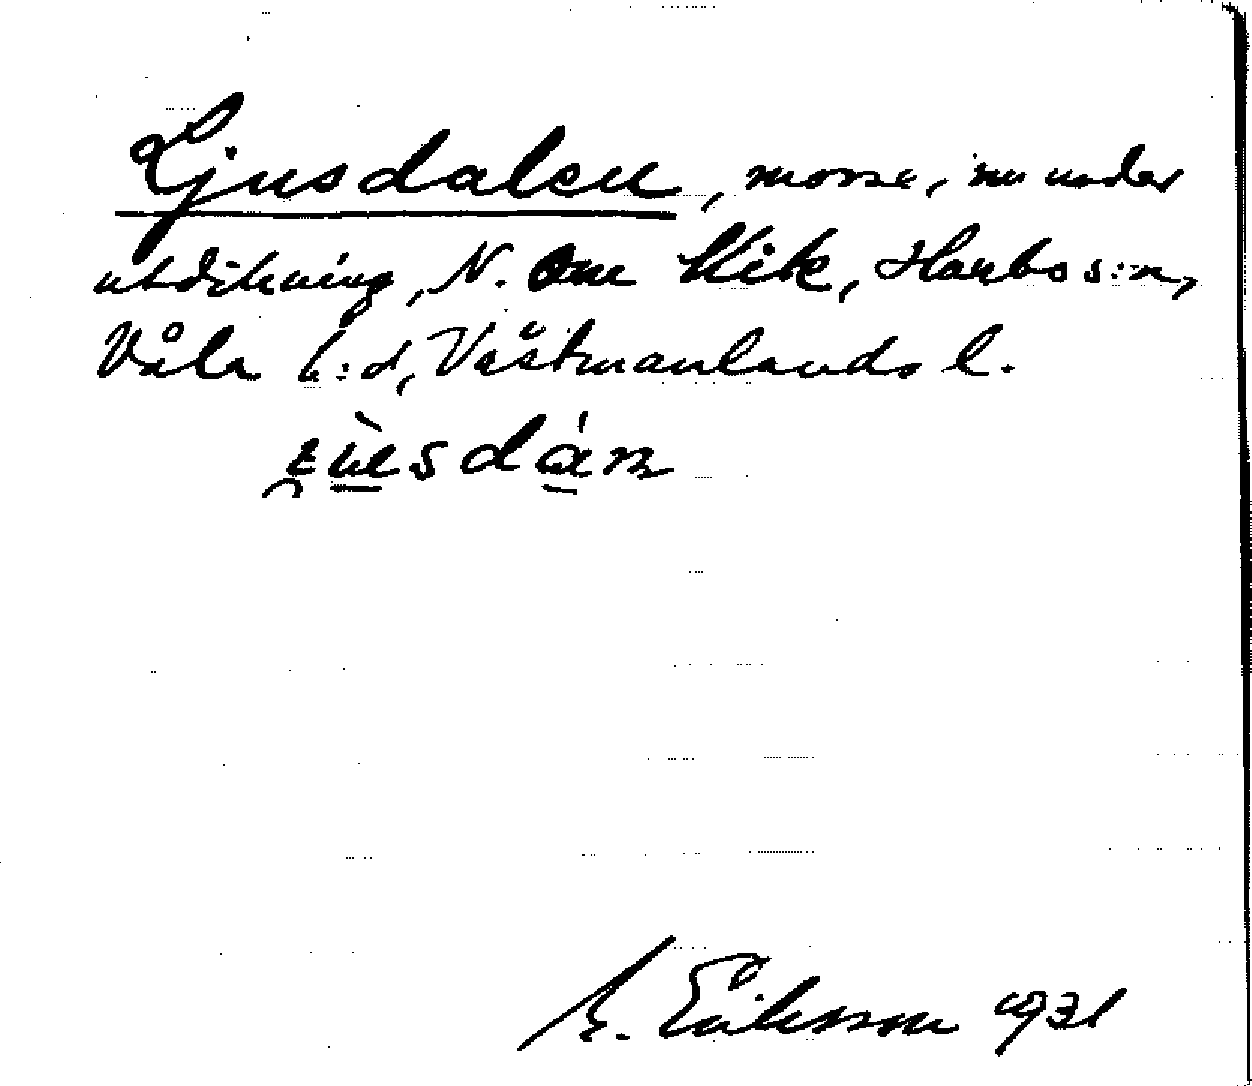 Ljusdalen, mosse, nu under
utdikning, N. Om Vik, Harbo s:n,
Våla h:d, Västmanlands l.
E. Eriksson 1931